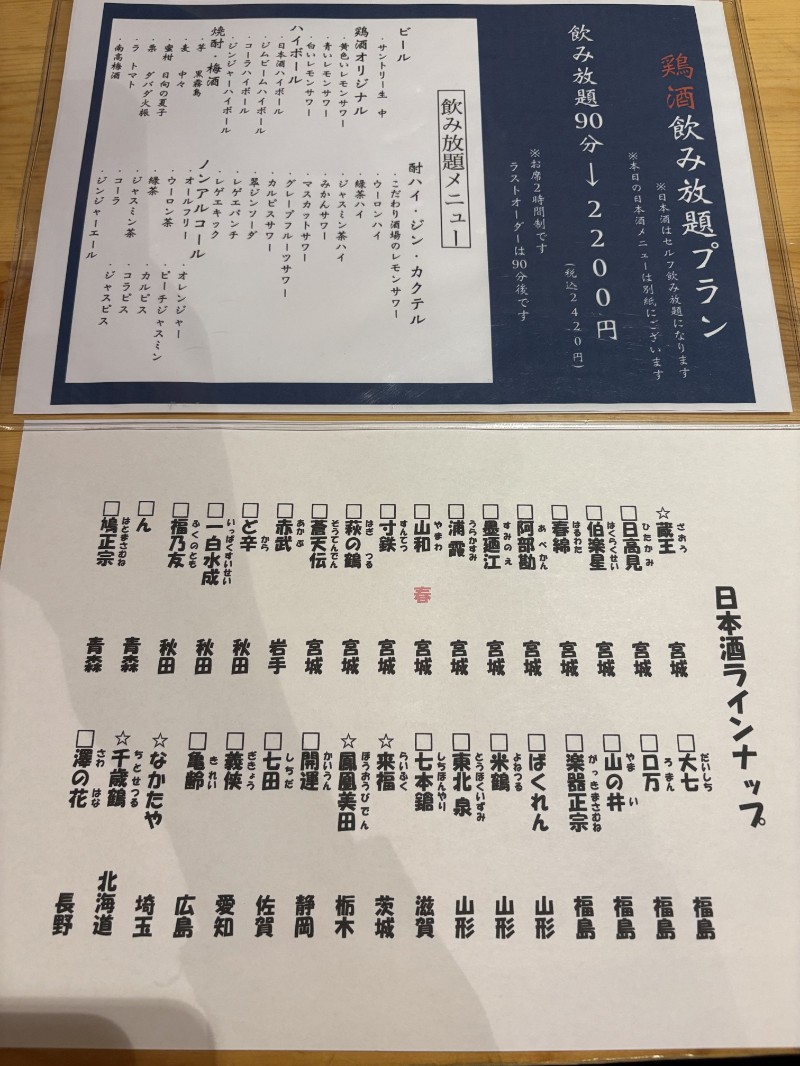 鶏酒飲み放題プラン
※日本酒はセルフ飲み放題になります
※本日の日本酒メニューは別紙にございます
飲み放題90分→2200円
(税込2420円)
※お席2時間制です
ラストオーダーは90分後です
飲み放題メニュー
ビール
・サントリー生 中
鶏酒オリジナル
・黄色いレモンサワー
・青いレモンサワー
・白いレモンサワー
ハイボール
・日本酒ハイボール
・ジムビームハイボール
・コーラハイボール
・ジンジャーハイボール
焼酎・梅酒
・芋 黒霧島
・麦 中々
・蜜柑 日向の夏子
・栗 ダバダ火振
・ラ トマト
・南高梅酒
酎ハイ・ジン・カクテル
・こだわり酒場のレモンサワー
・ウーロンハイ
・緑茶ハイ
・ジャスミン茶ハイ
・みかんサワー
・マスカットサワー
・グレープフルーツサワー
・カルピスサワー
・翠ジンソーダ
・レゲエパンチ
・レゲエキック
ノンアルコール
・オールフリー
・ウーロン茶
・緑茶
・ジャスミン茶
・コーラ
・ジンジャーエール
・オレンジャー
・ピーチジャスミン
・カルピス
・コラピス
・ジャスピス
日本酒ラインナップ
☆蔵王 ざおう 宮城
□日高見 ひたかみ 宮城
□伯楽星 はくらくせい 宮城
□春綿 はるわた 宮城
□阿部勘 あべかん 宮城
□墨廼江 すみのえ 宮城
□浦霞 うらかすみ 宮城
□山和 やまわ 春 宮城
□寸鉄 すんてつ 宮城
□萩の鶴 はぎ つる 宮城
□蒼天伝 そうてんでん 宮城
□赤武 あかぶ 岩手
□ど辛 から 秋田
□一白水成 いっぱくすいせい 秋田
□福乃友 ふくのとも 秋田
□ん 青森
□鳩正宗 はとまさむね 青森
□大七 だいしち 福島
□ロ万 ろまん 福島
□山の井 やま い 福島
□楽器正宗 がっきまさむね 福島
□ばくれん 山形
□米鶴 よねつる 山形
□東北泉 とうほくいずみ 山形
□七本鎗 しちほんやり 滋賀
☆来福 らいふく 茨城
☆鳳凰美田 ほうおうびでん 栃木
□開運 かいうん 静岡
□七田 しちだ 佐賀
□義侠 ぎきょう 愛知
□亀齢 きれい 広島
☆なかたや 埼玉
☆千歳鶴 ちとせつる 北海道
□澤の花 さわ はな 長野